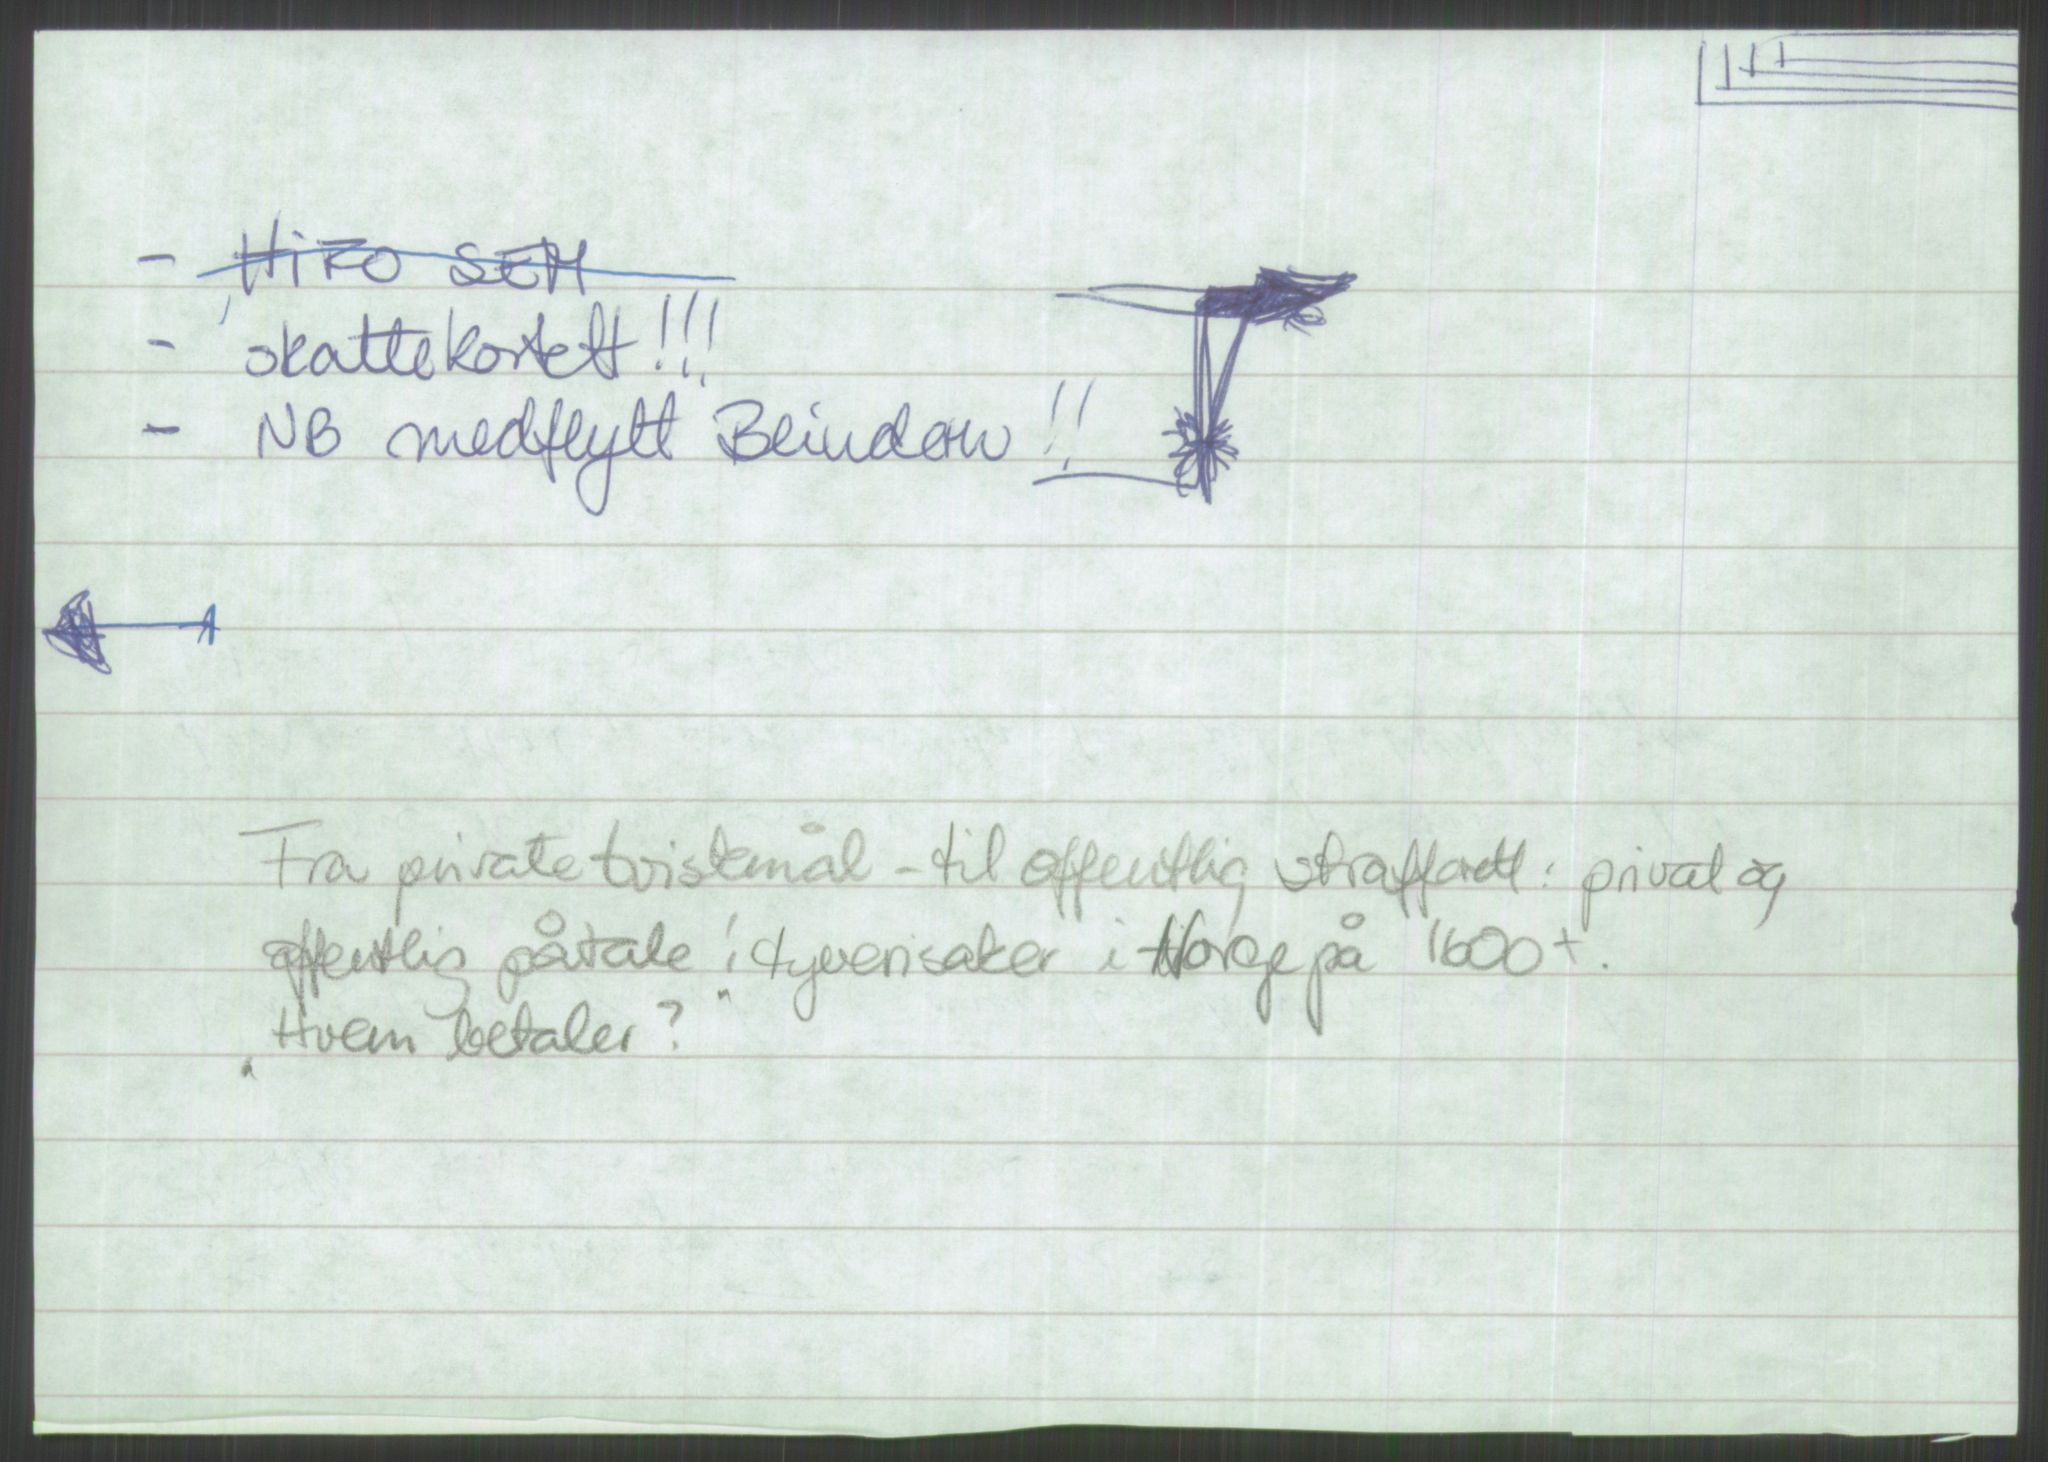 - HiFO SEM
- skattekortett!!!
- NB medflytt Blindern!!
Fra private tvistemål - til offentlig strafferett: privat og
offentlig påtale i tyverisaker i Norge på 1600 t.
"Hvem betaler?"